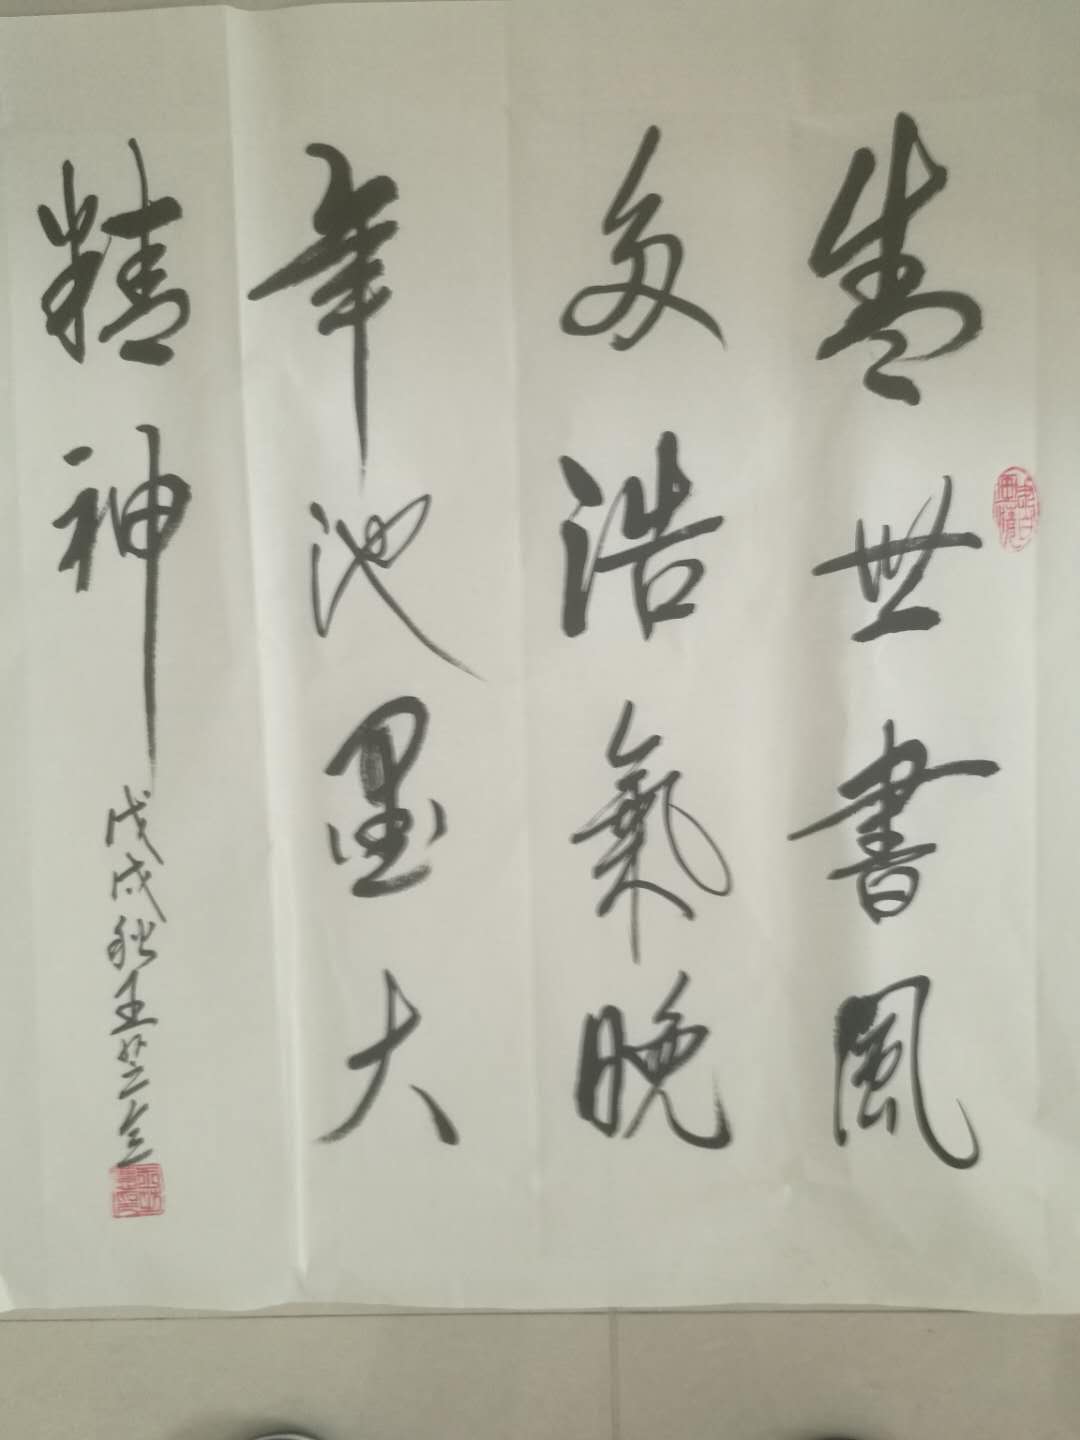 盛世書風
多浩氣晚
年池墨大
精神
戊戌秋王芝